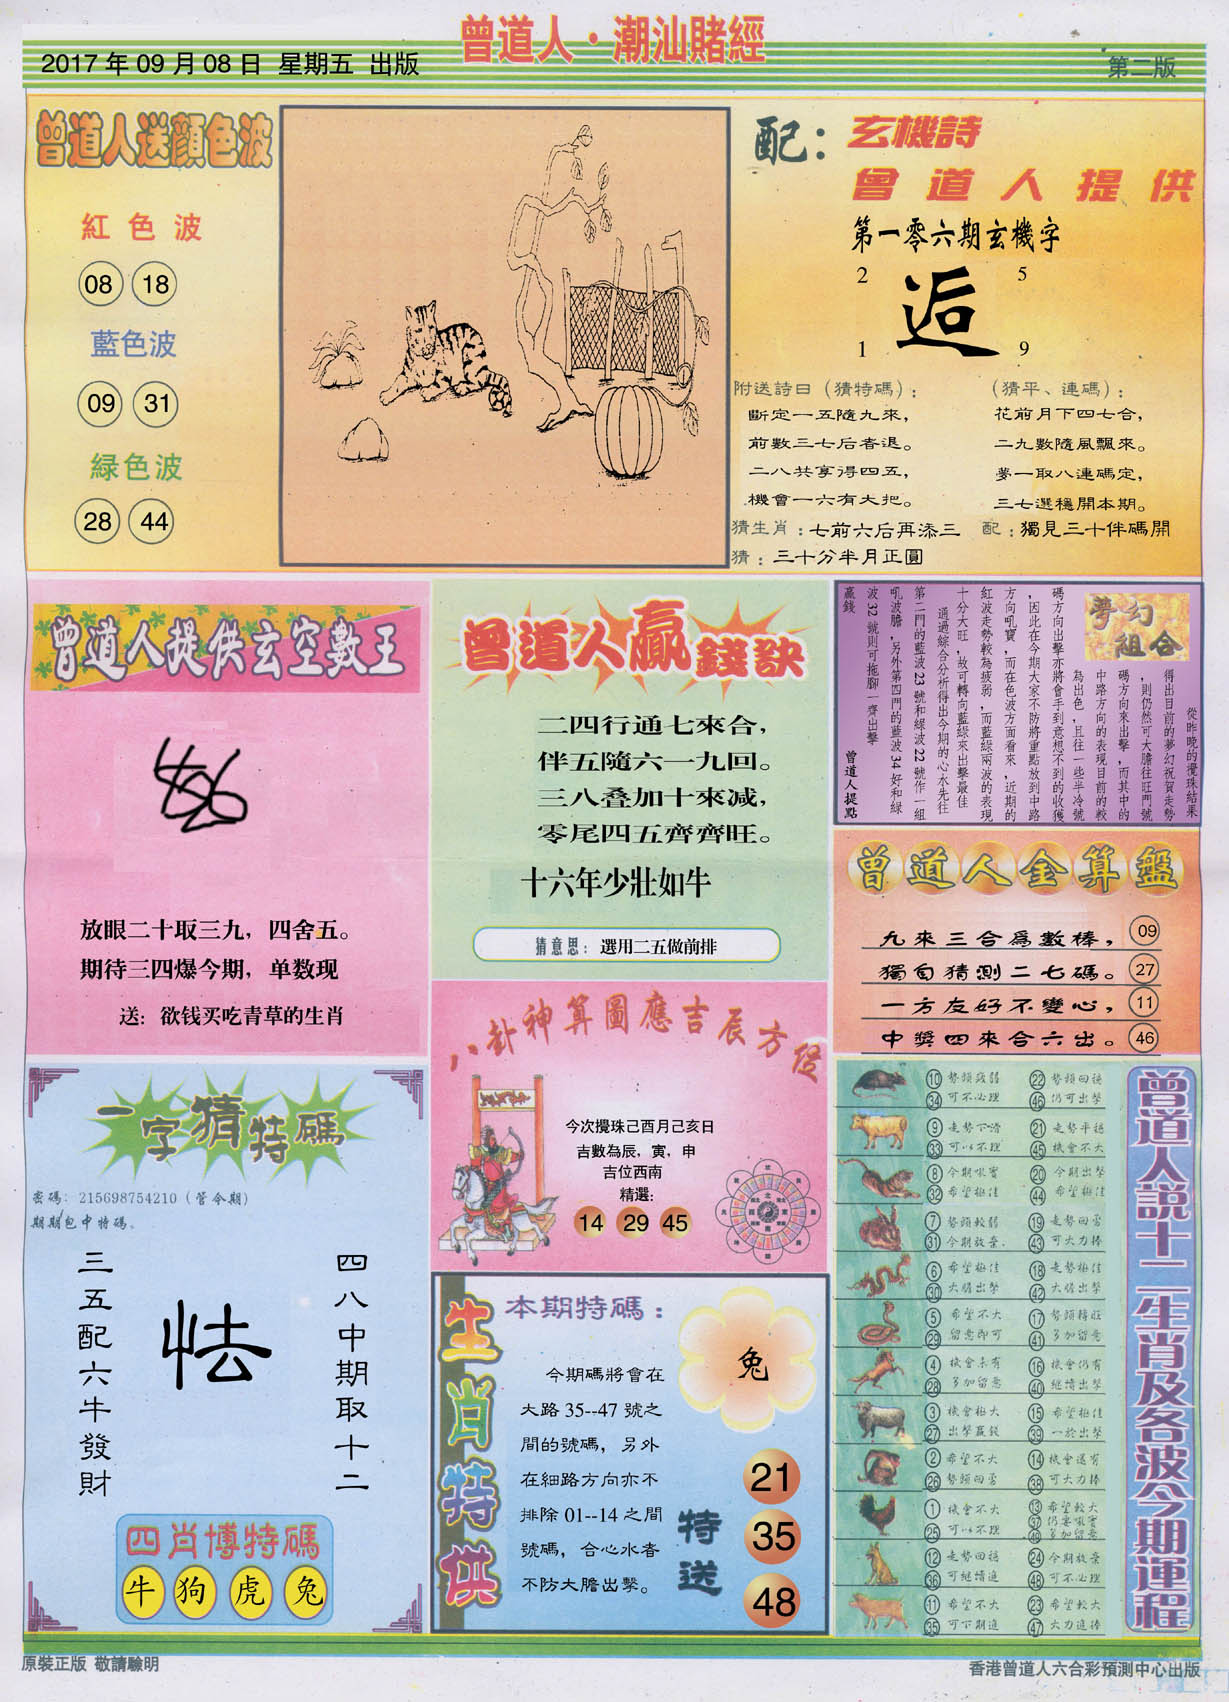 曾道人·潮汕賭經
2017 年 09 月 08 日 星期五 出版
第二版
曾道人送顏色波
紅色波
08 18
藍色波
09 31
緑色波
28 44
配：玄機詩
曾道人提供
第一零六期玄機字
2 5
逅
1 9
附送詩日（猜特碼）：
斷定一五隨九來，
前數三七后者退。
二八共享得四五，
機會一六有大把。
（猜平、連碼）：
花前月下四七合，
二九數隨風飄來。
夢一取八連碼定，
三七選穩開本期。
猜生肖：七前六后再添三
配：獨見三十伴碼開
猜：三十分半月正圓
曾道人提供玄空數王
放眼二十取三九，四舍五。
期待三四爆今期，单数现
送：欲钱买吃青草的生肖
曾道人贏錢訣
二四行通七來合，
伴五隨六一九回。
三八叠加十來减，
零尾四五齊齊旺。
十六年少壯如牛
猜意思：選用二五做前排
夢幻組合
從昨晚的攪珠結果
得出目前的夢幻祝賀走勢
，則仍然可大膽往旺門號
碼方向來出擊，而其中的
中路方向的表現目前的較
為出色，且往一些半冷號
碼方向出擊亦將會手到意想不到的收獲
，因此在今期大家不防將重點放到中路
方向吼寶，而在色波方面看來，近期的
紅波走勢較為疲弱，而藍綠兩波的表現
十分大旺，故可轉向藍綠來出擊最佳
通過綜合分析得出今期的心水先往
第二門的藍波 23 號和綠波 22 號作一組
吼波膽，另外第四門的藍波 34 好和綠
波 32 號則可拖腳一齊出擊
贏錢
曾道人提點
曾道人金算盤
九來三合爲數棒， 09
獨自猜測二七碼。 27
一方友好不變心， 11
中獎四來合六出。 46
八卦神算圖應吉辰方位
今次攪珠己酉月己亥日
吉數為辰，寅，申
吉位西南
精選：
14 29 45
一字猜特碼
密碼：215698754210（管令期）
期期包中特碼。
三五配六牛發財
怯
四八中期取十二
四肖博特碼
牛 狗 虎 兔
生肖特供
本期特碼：
兔
今期碼將會在
大路 35--47 號之
間的號碼，另外
在細路方向亦不
排除 01--14 之間
號碼，合心水者
不防大膽出擊。
特送
21
35
48
曾道人說十二生肖及各波今期運程
10 勢頭疲弱 22 勢頭回穩
34 可不必理 46 仍可出擊
9 走勢下滑 21 走勢平穩
33 可以不理 45 機會不大
8 今期吼實 20 今期出擊
32 希望極佳 44 希望極佳
7 勢頭較弱 19 走勢回勇
31 今期放棄. 43 可大力捧
6 希望極佳 18 走勢極佳
30 大膽出擊 42 大膽出擊
5 希望不大 17 勢頭轉旺
29 留意即可 41 多加留意
4 機會未有 16 機會仍有
28 多加留意 40 繼續出擊
3 機會極大 15 希望極佳
27 出擊贏錢 39 一於出擊
2 希望不大 14 機會還有
26 勢頭回勇 38 可大力捧
1 機會不大 13 希望較大
37 仍要吼實
25 可以不理 49 多加留意
12 走勢回穩 24 今期放棄
36 可繼續追 48 可不必理
11 希望不大 23 希望較大
35 可下期追 47 大力追捧
原裝正版 敬請驗明
香港曾道人六合彩預測中心出版